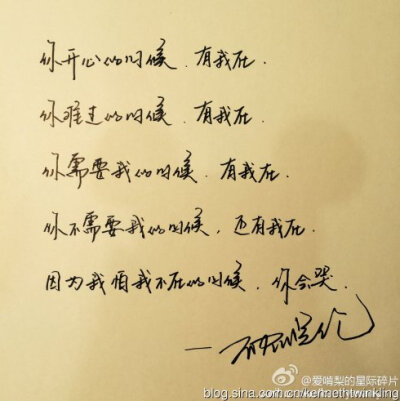 你开心的时候.有我在.
你难过的时候.有我在.
你需要我的时候.有我在.
你不需要我的时候,还有我在.
因为我怕我不在的时候.你会哭.
@爱啃梨的星际碎片
blog.sina.com.cn/kennethytwinkling